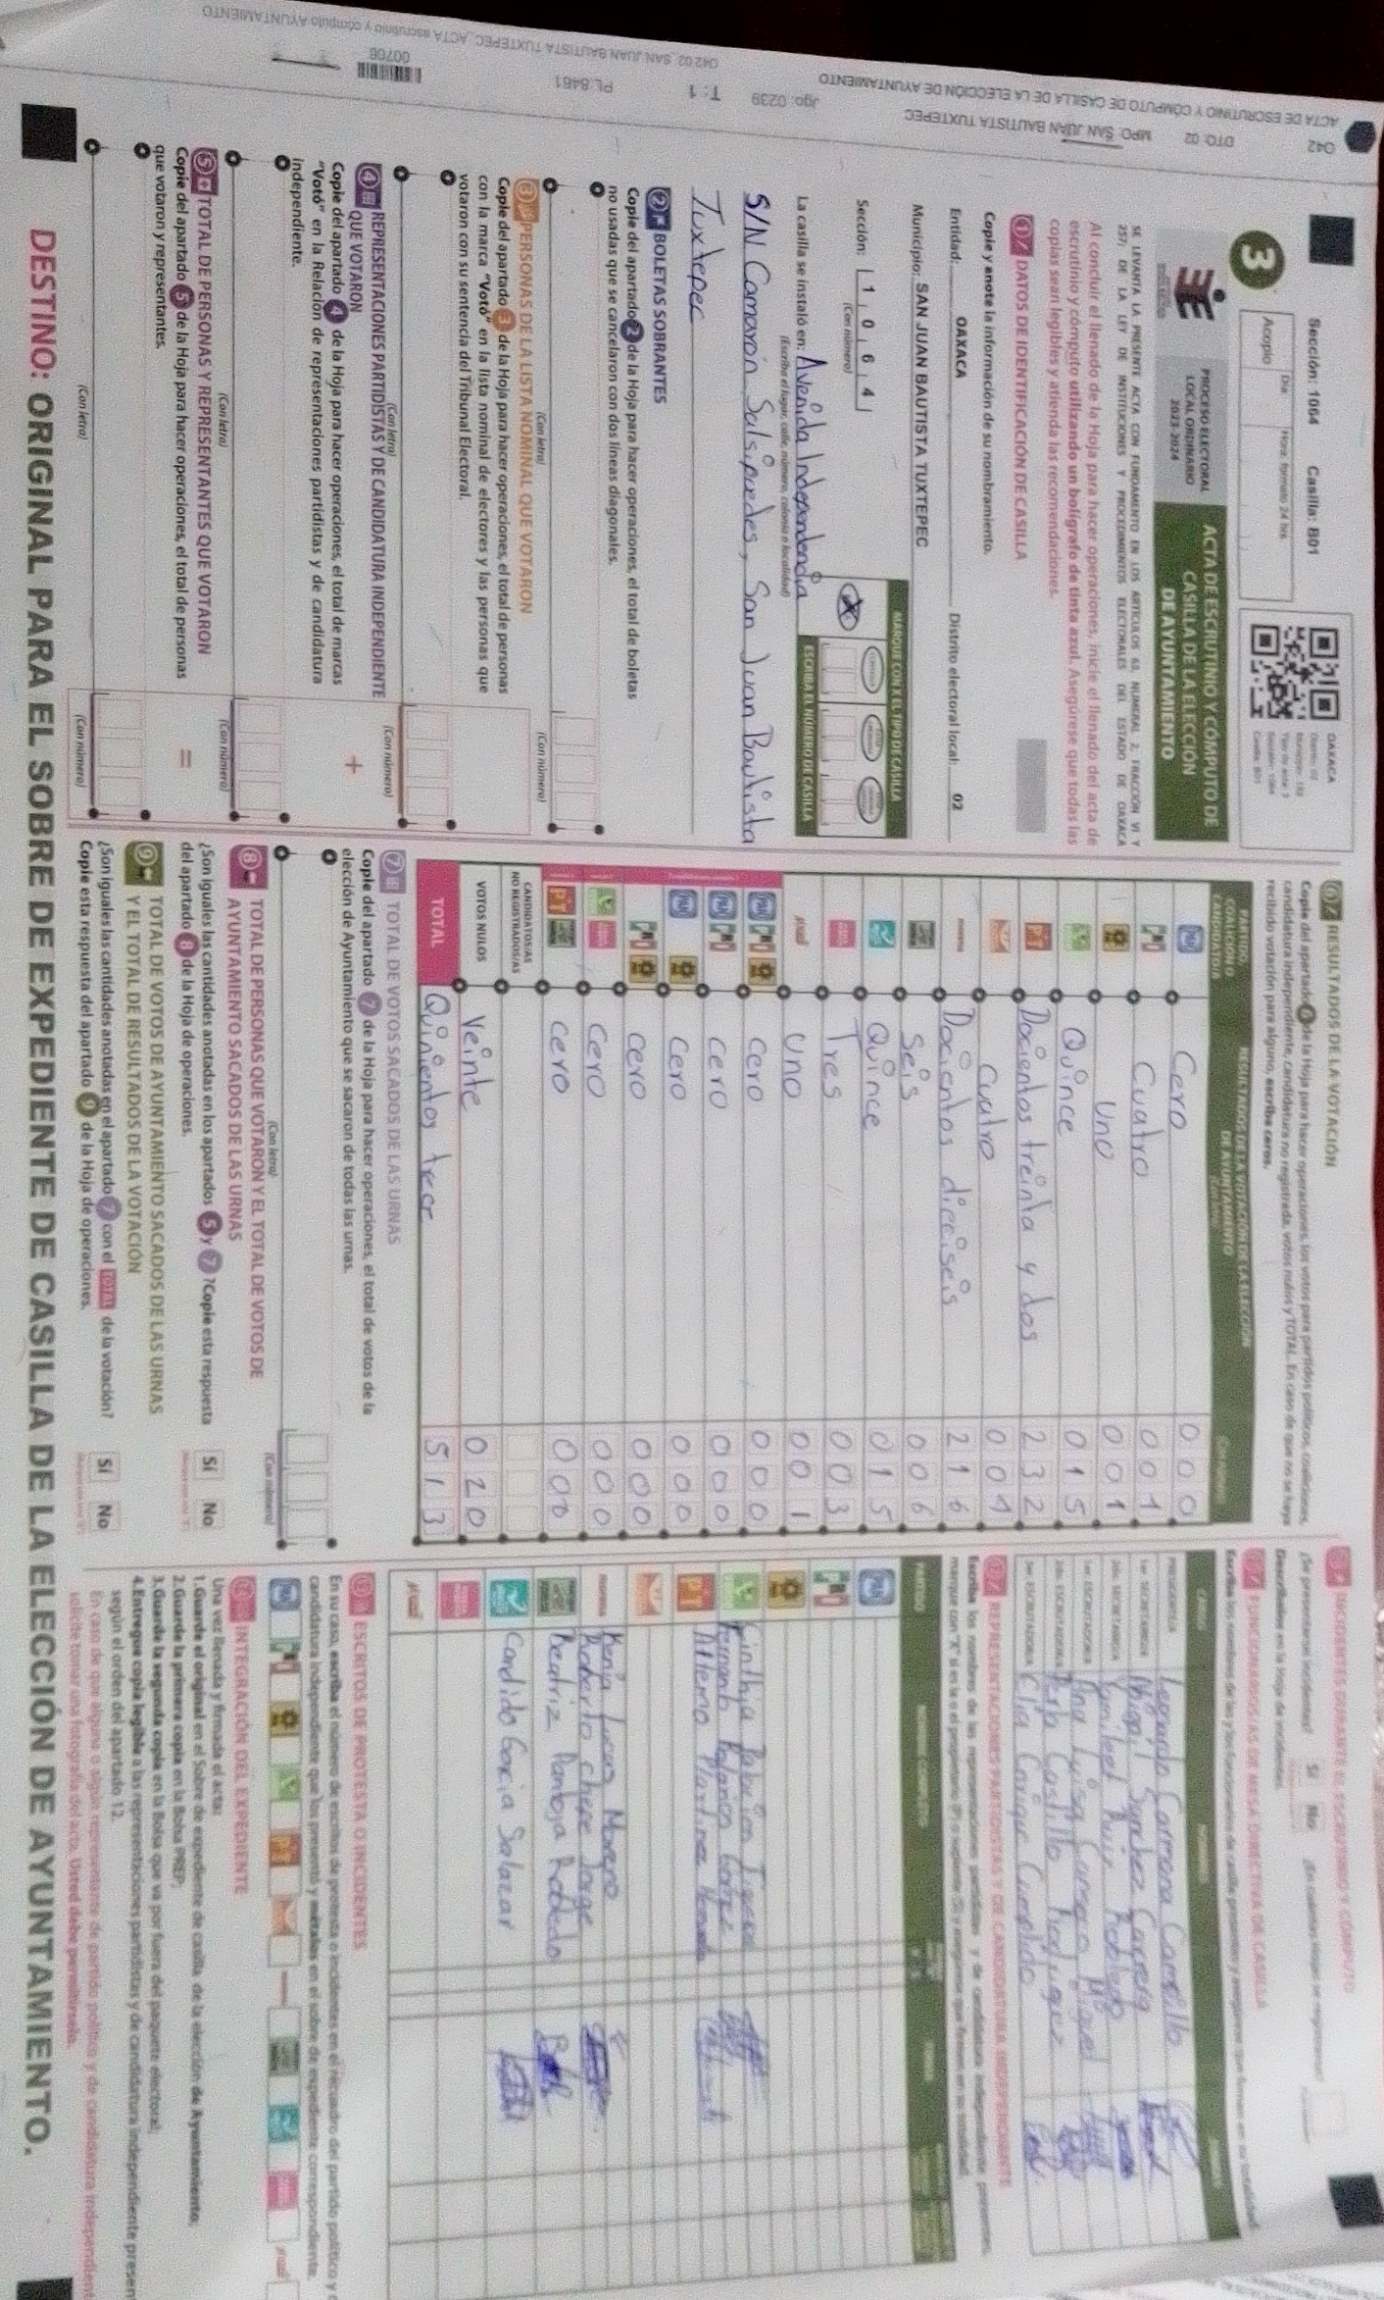 042
DTO: 02
MPO. SAN JUAN BAUTISTA TUXTEPEC
ACTA DE ESCRUTINIO Y CÓMPUTO DE CASILLA DE LA ELECCIÓN DE AYUNTAMIENTO
Jgo: 0239
T: 1
PL: 8461
00706
042 02_SAN JUAN BAUTISTA TUXTEPEC_ACTA escrutinio y cómputo AYUNTAMIENTO
Sección: 1064 Casilla: B01
3
Día
Hora: formato 24 hrs
Acopio
OAXACA
PROCESO ELECTORAL
LOCAL ORDINARIO
2023-2024
ACTA DE ESCRUTINIO Y CÓMPUTO DE
CASILLA DE LA ELECCIÓN
DE AYUNTAMIENTO
SE LEVANTA LA PRESENTE ACTA CON FUNDAMENTO EN LOS ARTÍCULOS 63, NUMERAL 2, FRACCIÓN VI Y
257; DE LA LEY DE INSTITUCIONES Y PROCEDIMIENTOS ELECTORALES DEL ESTADO DE OAXACA
Al concluir el llenado de la Hoja para hacer operaciones, inicie el llenado del acta de
escrutinio y cómputo utilizando un bolígrafo de tinta azul. Asegúrese que todas las
copias sean legibles y atienda las recomendaciones.
1 DATOS DE IDENTIFICACIÓN DE CASILLA
Copie y anote la información de su nombramiento.
Entidad: OAXACA Distrito electoral local: 02
Municipio: SAN JUAN BAUTISTA TUXTEPEC
Sección: 1 0 6 4
(Con número)
MARQUE CON X EL TIPO DE CASILLA
ESCRIBA EL NÚMERO DE CASILLA
La casilla se instaló en: Avenida Independencia
(Escriba el lugar, calle, número, colonia o localidad)
S/N Camaron Salsipuedes, San Juan Bautista
Tuxtepec
2 BOLETAS SOBRANTES
Copie del apartado 2 de la Hoja para hacer operaciones, el total de boletas
no usadas que se cancelaron con dos líneas diagonales.
(Con letra) (Con número)
3 PERSONAS DE LA LISTA NOMINAL QUE VOTARON
Copie del apartado 3 de la Hoja para hacer operaciones, el total de personas
con la marca "Votó" en la lista nominal de electores y las personas que
votaron con su sentencia del Tribunal Electoral.
(Con letra) (Con número)
4 REPRESENTACIONES PARTIDISTAS Y DE CANDIDATURA INDEPENDIENTE
QUE VOTARON
Copie del apartado 4 de la Hoja para hacer operaciones, el total de marcas
"Votó" en la Relación de representaciones partidistas y de candidatura
independiente.
+
(Con letra) (Con número)
5 TOTAL DE PERSONAS Y REPRESENTANTES QUE VOTARON
Copie del apartado 5 de la Hoja para hacer operaciones, el total de personas
que votaron y representantes.
=
(Con letra) (Con número)
6 RESULTADOS DE LA VOTACIÓN
Copie del apartado 6 de la Hoja para hacer operaciones, los votos para partidos políticos, coaliciones,
candidatura independiente, candidatura no registrada, votos nulos y TOTAL. En caso de que no se haya
recibido votación para alguno, escriba ceros.
PARTIDO,
COALICIÓN O
CANDIDATURA
RESULTADOS DE LA VOTACIÓN DE LA ELECCIÓN
DE AYUNTAMIENTO
Cero 0 0 0
Cuatro 0 0 4
Uno 0 0 1
Quince 0 1 5
PT Docientos treinta y dos 2 3 2
Cuatro 0 0 4
Docientos dieciseis 2 1 6
Seis 0 0 6
Quince 0 1 5
Tres 0 0 3
Uno 0 0 1
Cero 0 0 0
Cero 0 0 0
Cero 0 0 0
Cero 0 0 0
Cero 0 0 0
PT Cero 0 0 0
CANDIDATOS/AS
NO REGISTRADOS/AS
VOTOS NULOS Veinte 0 2 0
TOTAL Quinientos trece 5 1 3
7 TOTAL DE VOTOS SACADOS DE LAS URNAS
Copie del apartado 7 de la Hoja para hacer operaciones, el total de votos de la
elección de Ayuntamiento que se sacaron de todas las urnas.
(Con letra) (Con número)
8 TOTAL DE PERSONAS QUE VOTARON Y EL TOTAL DE VOTOS DE
AYUNTAMIENTO SACADOS DE LAS URNAS
¿Son iguales las cantidades anotadas en los apartados 5 y 7 ? Copie esta respuesta
del apartado 8 de la Hoja de operaciones.
Sí No
9 TOTAL DE VOTOS DE AYUNTAMIENTO SACADOS DE LAS URNAS
Y EL TOTAL DE RESULTADOS DE LA VOTACIÓN
¿Son iguales las cantidades anotadas en el apartado 7 con el TOTAL de la votación?
Copie esta respuesta del apartado 9 de la Hoja de operaciones.
Sí No
INCIDENTES DURANTE EL ESCRUTINIO Y CÓMPUTO
¿Se presentaron incidentes? Sí No
Descríbalos en la Hoja de incidentes.
FUNCIONARIOS/AS DE MESA DIRECTIVA DE CASILLA
Leopardo Carmona Cantillo
Sanchez Carrera
Yamileet Ruiz Robledo
Ana Luisa
Perla Castillo Rodriguez
Clia Casique Cumplido
REPRESENTACIONES PARTIDISTAS Y DE CANDIDATURA INDEPENDIENTE
Fernando Palacios
PT Martinez
Kenia Lucas Moreno
Roberto Chape Jorge
Beatriz Pantoja Robledo
Candido Garcia Salazar
ESCRITOS DE PROTESTA O INCIDENTES
En su caso, escriba el número de escritos de protesta o incidentes en el recuadro del partido político y
candidatura independiente que los presentó y métalos en el sobre de expediente correspondiente.
INTEGRACIÓN DEL EXPEDIENTE
Una vez llenada y firmada el acta:
1. Guarde el original en el Sobre de expediente de casilla de la elección de Ayuntamiento;
2. Guarde la primera copia en la Bolsa PREP;
3. Guarde la segunda copia en la Bolsa que va por fuera del paquete electoral;
4. Entregue copia legible a las representaciones partidistas y de candidatura independiente
según el orden del apartado 12.
En caso de que alguna o algún representante de partido político y de candidatura independient
solicite tomar una fotografía del acta. Usted debe permitírselo.
DESTINO: ORIGINAL PARA EL SOBRE DE EXPEDIENTE DE CASILLA DE LA ELECCIÓN DE AYUNTAMIENTO.